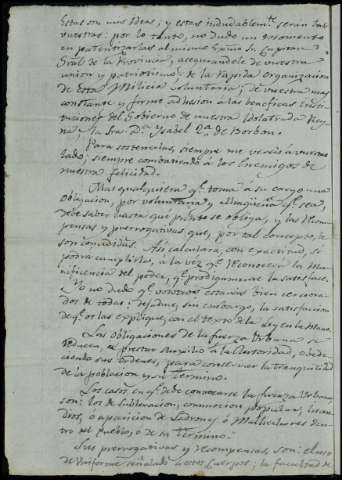 Estas son mis ideas; y estas indudablemte. serán las
vuestras: por lo tanto, no dudo un momento
en patentizarlas al mismo Exmo Sr Capitan
Gral de la Provincia, asegurandole de vuestra
union y patriotismo; de la rapida organizacion
de esta Milicia Voluntaria; de vuestra mas
constante y firme adhesion á las beneficas
del Gobierno de nuestra Idolatrada Reyna
la Sra. Da. Ysabel 2a. de Borbon.
Para sostenerlas, siempre me vereis á vuestro
lado, siempre combatiendo á los Enemigos de
nuestra felicidad.
Mas qualquiera qe. toma á su cargo una
obligacion, por voluntaria, y alhagüeña qe. sea,
debe saber hasta que punto se obliga, y las recom-
pensas y prerrogativas que, por tal concepto, le
son concedidas. Asi calculará, con exactitud, si
podrá cumplirlo, á la vez qe. reconocerá la Mu-
nificencia del poder, qe. prodigamente le satisface.
Yo no dudo qe. vosotros estareis bien cerciora-
dos de todas: dejadme, sin embargo, la satisfaccion
de qe. os las explique, con el texto de la Ley en la Mano.
Las obligaciones de la fuerza Urbana se
reducen, á prestar auxilio á la Autoridad, obede-
ciendo sus ordenes para conservar la tranquilidad
de la poblacion y su Termino.
Los casos en qe. debe convocarse la fuerza Urbana
son: los de sublevacion, conmocion popular, incen-
dios, ó aparicion de Ladrones ó Malhechores den-
tro del Pueblo, ó de su Termino.
Sus prerrogativas y recompensas, son: el uso
de Uniforme señalado á estos Cuerpos; la facultad de